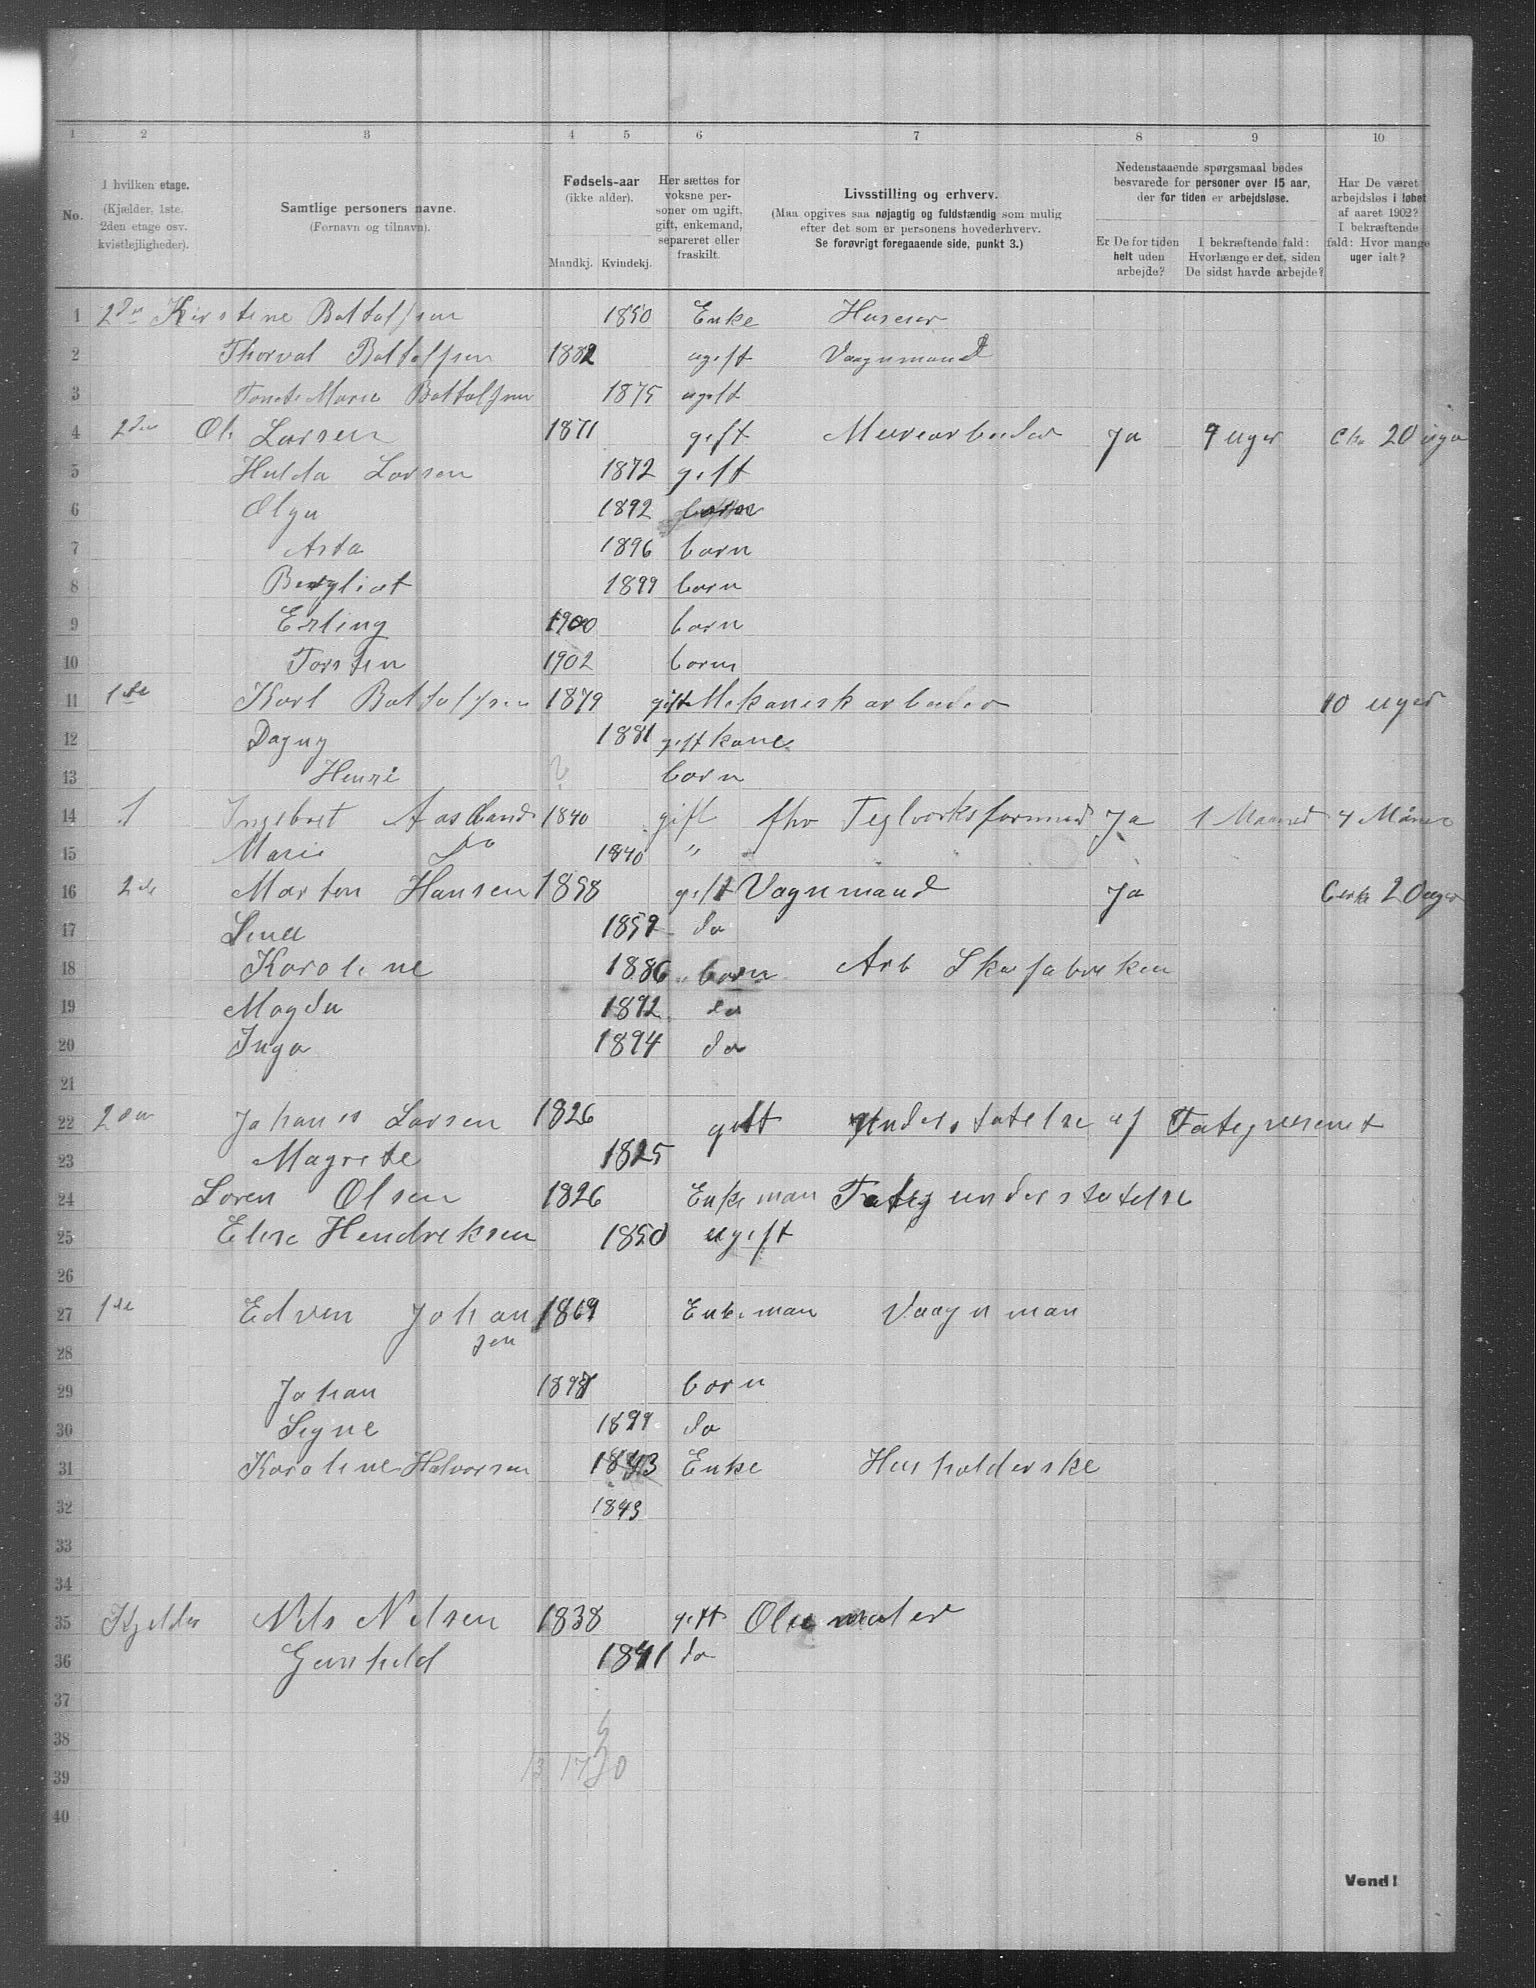 1 2 3 4 5 6 7 8 9 10
No.
I hvilken etage.
(Kjælder, 1ste.
2den etage osv.
kvistlejligheder).
Samtlige personers navne.
(Fornavn og tilnavn).
Fødsels-aar
(ikke alder).
Mandkj. Kvindekj.
Her sættes for
voksne per-
soner om ugift,
gift, enkemand,
separeret eller
fraskilt.
Livsstilling og erhverv.
(Maa opgives saa nøjagtig og fuldstændig som mulig
efter det som er personens hovederhverv.
Se forøvrigt foregaaende side, punkt 3.)
Nedenstaaende spørgsmaal bedes
besvarede for personer over 15 aar,
der for tiden er arbejdsløse.
Er De for tiden
helt uden
arbejde?
I bekræftende fald:
Hvorlænge er det, siden
De sidst havde arbejde?
Har De været
arbejdsløs i løbet
af aaret 1902?
I bekræftende
fald: Hvor mange
uger ialt?
1 2den Kirstine Battalfsen 1850 Enke Huseier
2 Thorval Battalfsen 1882 ugift Vaagnmand
3 Marie Battalfsen 1875 ugift
4 2den Ole Larsen 1871 gift Murearbeider Ja 9 uger 20 uger
5 Hulda Larsen 1872 gift
6 Olga 1892 barn
7 Asta 1896 barn
8 Bergliot 1899 barn
9 Erling 1900 barn
10 Torsten 1902 barn
11 1ste Karl Battalfsen 1879 gift Mekanisk arbeider 10 uger
12 Dagny 1881 gift kone
13 Henri ? barn
14 1 Ingebret Aasland 1840 gift fhv Teglverksformand Ja 1 Maaned 4 Måner
15 Marie Do 1840 " " " "
16 2de Marten Hansen 1858 gift Vagnmand Ja Cirka 20 uger
17 Lina 1859 do
18 Karoline 1886 barn Arb Skofabriken
19 Magda 1892 do
20 Inga 1894 do
21
22 2den Johanes Larsen 1826 gift Understøtelse af Fategvesenet
23 Magrete 1825
24 Soren Olsen 1826 Enkeman Fategunderstøtelse
25 Elise Hendreksen 1850 ugift
26
27 1ste Edven Johan 1869 Enkeman Vaagnman
28 sen
29 Johan 1897 barn
30 Segne 1899 do
31 Karoline Halvorsen 1843 Enke Husholderske
32 1843
33
34
35 Kjelder Nels Nelsen 1838 gift Oliemaler
36 Gunhild 1841 do
37
38
39 13 17
40
Vend!